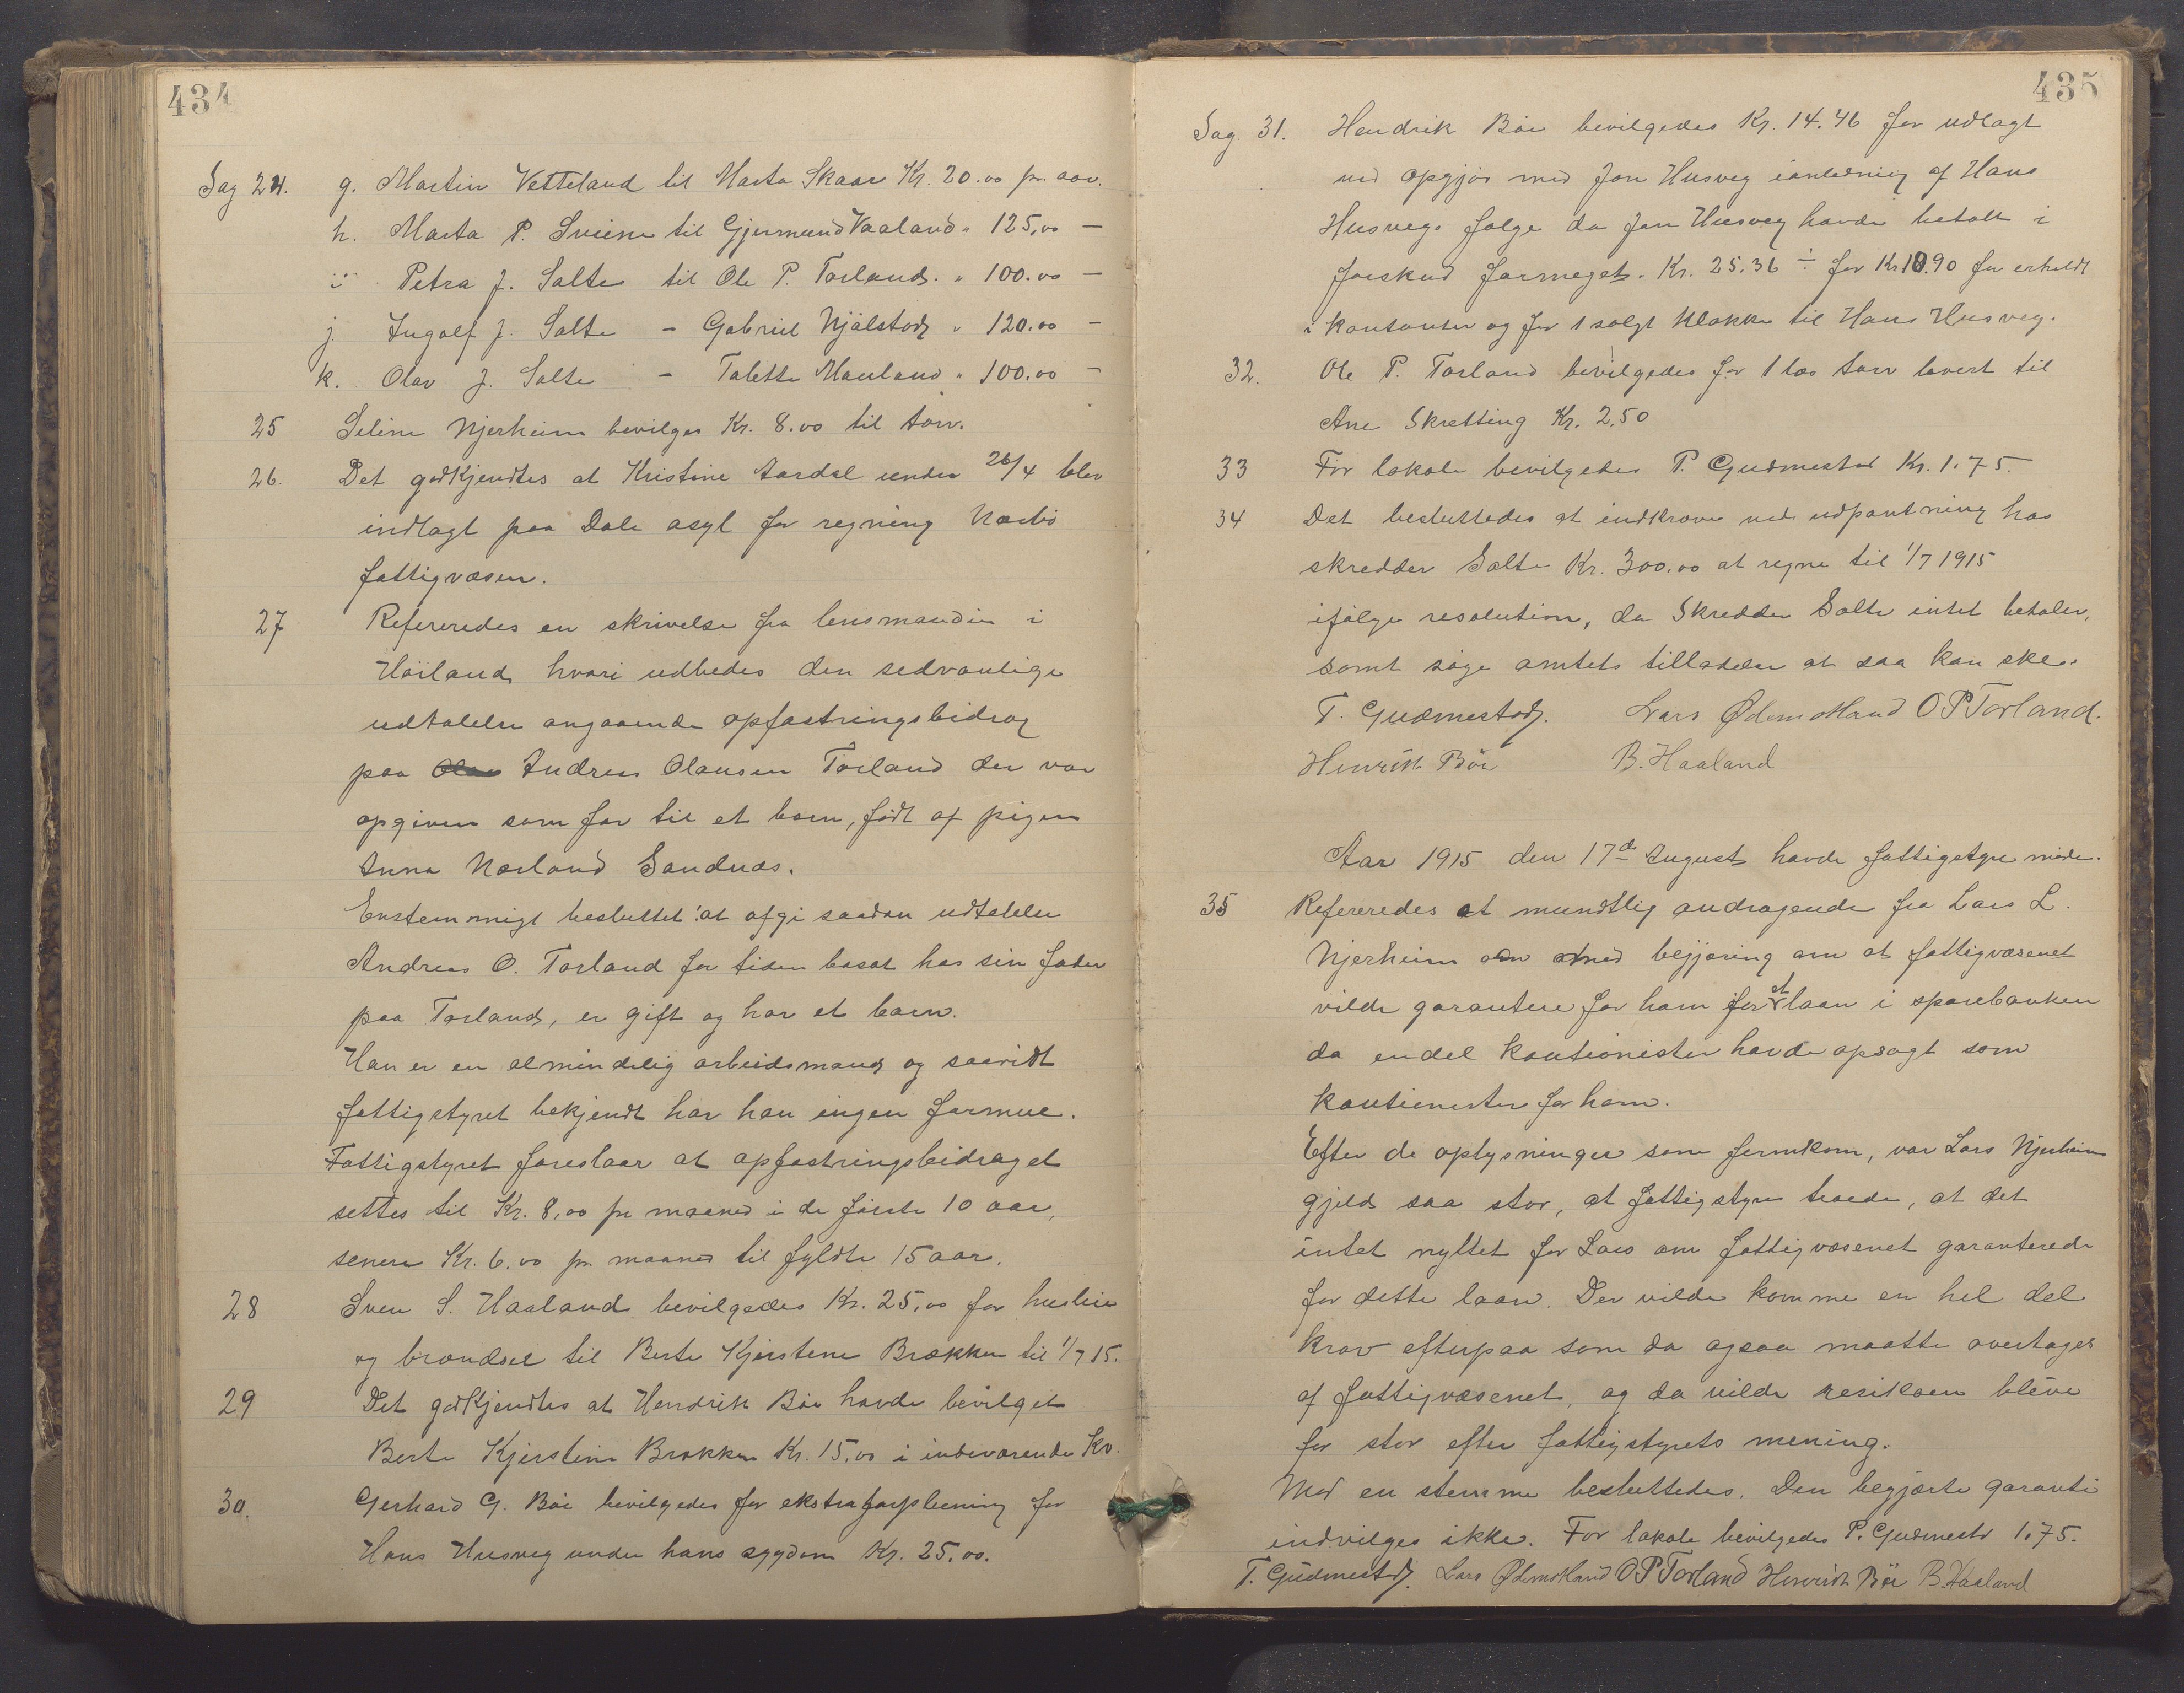 434
Sag 24. g. Martin Vetteland til Marta Skaar Kr. 20.00 pr. aar.
h. Marta P. Sviene til Gjermund Vaaland " 125,00 —
i: Petra J. Salte til Ole P. Torland. " 100.00 —
j Ingolf J. Salte – Gabriel Njålstad " 120.00 —
k. Olav J. Salte – Talette Mauland " 100.00 —
25 Seline Njerheim bevilges Kr. 8.00 til torv.
26. Det godkjendtes at Kristine Aardal under 26/4 blev
indlagt paa Dale asyl for regning Nærbø
fattigvæsen.
27 Refereredes en skrivelse fra lensmanden i
Høiland hvori udbedes den sedvanlige
udtalelse angaaende opfostringsbidrag
paa Andreas Olausen Torland der var
opgiven som far til et barn, født af pigen
Anna Nærland Sandnæs.
Enstemmigt besluttet: at afgi saadan udtalelse
Andreas O. Torland for tiden bosat hos sin fader
paa Torland, er gift og har et barn.
Han er en almindelig arbeidsmand og saavidt
fattigstyret bekjendt har han ingen formue.
Fattigstyret foreslaar at opfostringsbidraget
settes til Kr. 8,00 pr maaned i de første 10 aar,
senere Kr. 6.00 pr maaned til fyldte 15 aar.
28 Sven S. Haaland bevilgedes Kr. 25,00 for husleie
og brændsel til Berte Kjerstine Brækken til 1/7 15.
29 Det godkjendtes at Hendrik Bøe havde bevilget
Berte Kjerstine Brækken Kr. 15,00 i indeværende Kv.
30. Gerhard G. Bøe bevilgedes for ekstraforpleining for
Hans Husveg under hans sygdom Kr. 25.00.
435
Sag. 31. Hendrik Bøe bevilgedes Kr. 14.46 for udlagt
ved opgjør med Jon Husveg ianledning af Hans
Husvegs følge da Jon Husveg havde betalt i
forskud formeget. Kr. 25.36 ÷ for Kr 10.90 for erholdt
i kontanter og for 1 solgt klokke til Hans Husveg.
32. Ole P. Torland bevilgedes for 1 læs torv levert til
Ane Skretting Kr. 2,50
33 For lokale bevilgedes P. Gudmestad Kr. 1.75.
34 Det besluttedes at indkræve ved udpantning hos
skredder Salte Kr. 300.00 at regne til 1/7 1915
ifølge resolution, da Skredder Salte intet betaler,
samt søge amtets tilladelse at saa kan ske.
T. Gudmestad. Lars Ødemotland O P Torland.
Henrik Bøe B. Haaland
Aar 1915 den 17de August havde fattigstyre møde.
35 Refereredes et mundtlig andragende fra Lars L.
Njerheim med begjæring om at fattigvæsenet
vilde garantere for ham for et laan i sparebanken
da endel kautionister havde opsagt som
kautionister for ham.
Efter de oplysninger som fremkom, var Lars Njerheims
gjeld saa stor, at fattigstyre troede, at det
intet nyttet for Lars om fattigvæsenet garanterede
for dette laan. Der vilde komme en hel del
krav efterpaa som da ogsaa maatte overtages
af fattigvæsenet, og da vilde resikoen blive
for stor efter fattigstyrets mening.
Mod en stemme besluttedes. Den begjærte garanti
indvilges ikke. For lokale bevilgedes P. Gudmestd 1.75.
T. Gudmestad. Lars Ødemotland O P Torland Henrik Bøe B. Haaland